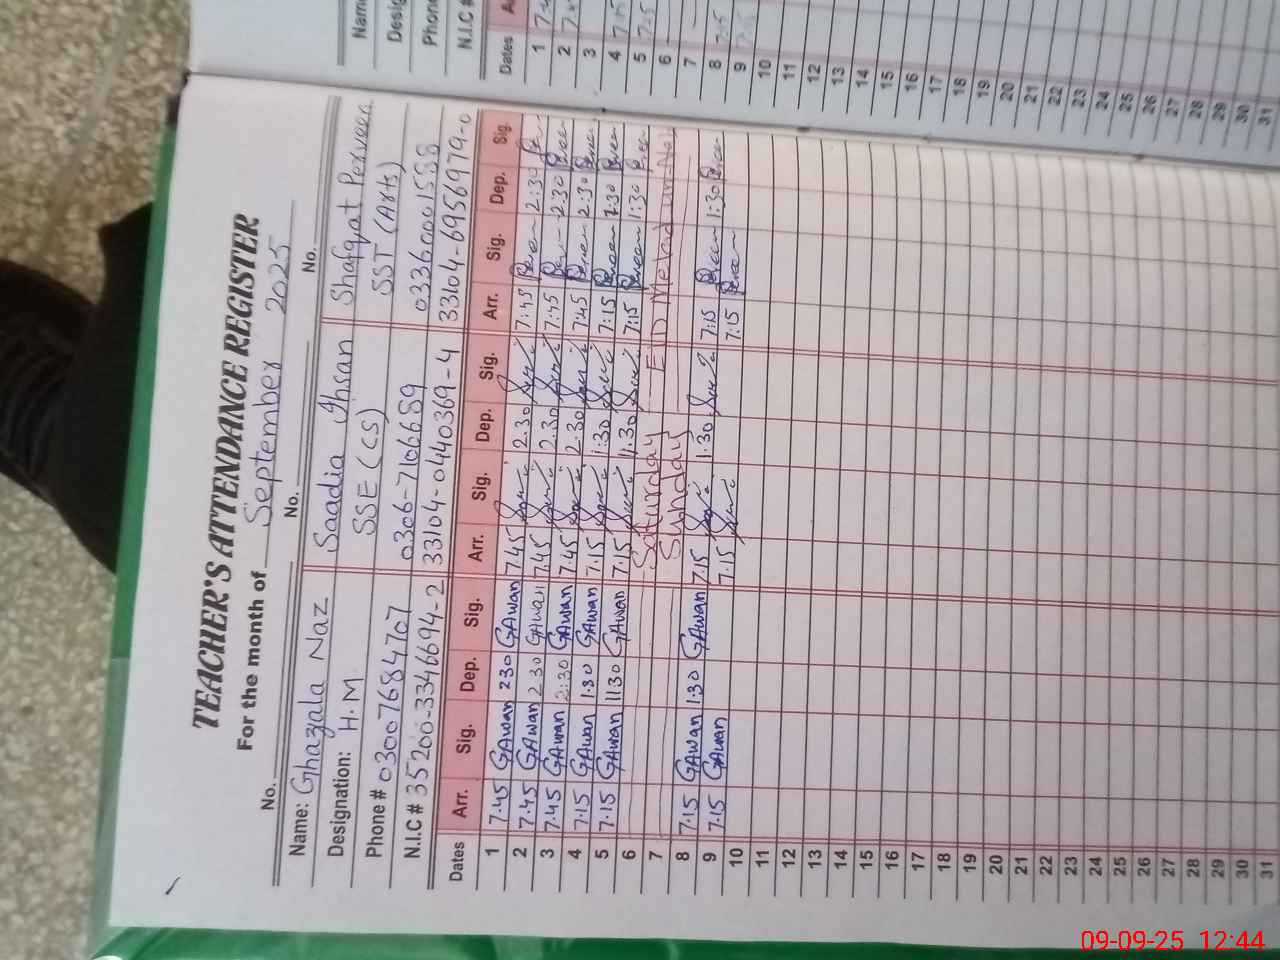 TEACHER'S ATTENDANCE REGISTER
For the month of September 2025
No. No. No.
Name: Ghazala Naz Saadia Ihsan Shafqat Perveen
Designation: H.M SSE (CS) SST (Arts)
Phone # 03007684707 0306-7166689 03360001588
N.I.C # 35200-3346694-2 33104-0440369-4 33104-6956979-0
Dates Arr. Sig. Dep. Sig. Arr. Sig. Dep. Sig. Arr. Sig. Dep. Sig.
1 7.45 GAwan 230 GAwan 7.45 2.30 7:45 2:30
2 7.45 GAwan 2 30 GAwan 7.45 2.30 7:45 2:30
3 7.45 GAwan 2:30 GAwan 7.45 2.30 7:45 2:30
4 7.15 GAwan 1:30 GAwan 7.15 1:30 7:15 1:30
5 7.15 GAwan 1130 GAwan 7.15 1.30 7:15 1:30
6 Saturday EID
7 Sunday
8 7.15 GAwan 1:30 GAwan 7.15 1:30 7:15 1:30
9 7.15 GAwan 7.15 7:15
10
11
12
13
14
15
16
17
18
19
20
21
22
23
24
25
26
27
28
29
30
31
Name
Phone
N.I.C #
Dates
1
2
3
4
5
6
7
8
9
10
11
12
13
14
15
16
17
18
19
20
21
22
23
24
25
26
27
28
29
30
31
09-09-25 12:44